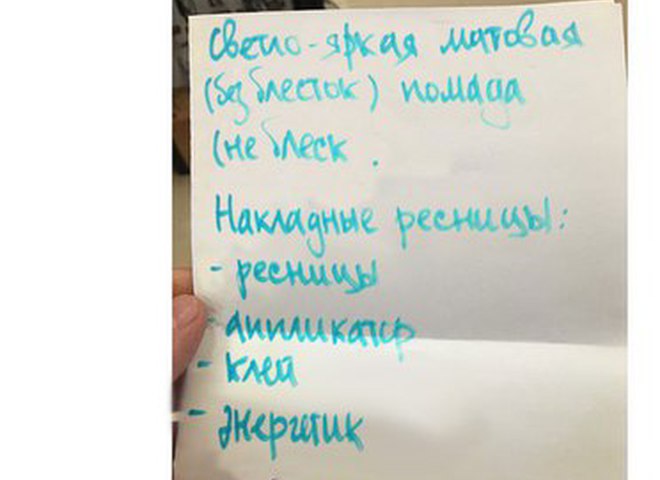 Светло-яркая матовая
(без блесток) помада
(не блеск .
Накладные ресницы:
- ресницы
- аппликатор
- клей
- энергетик